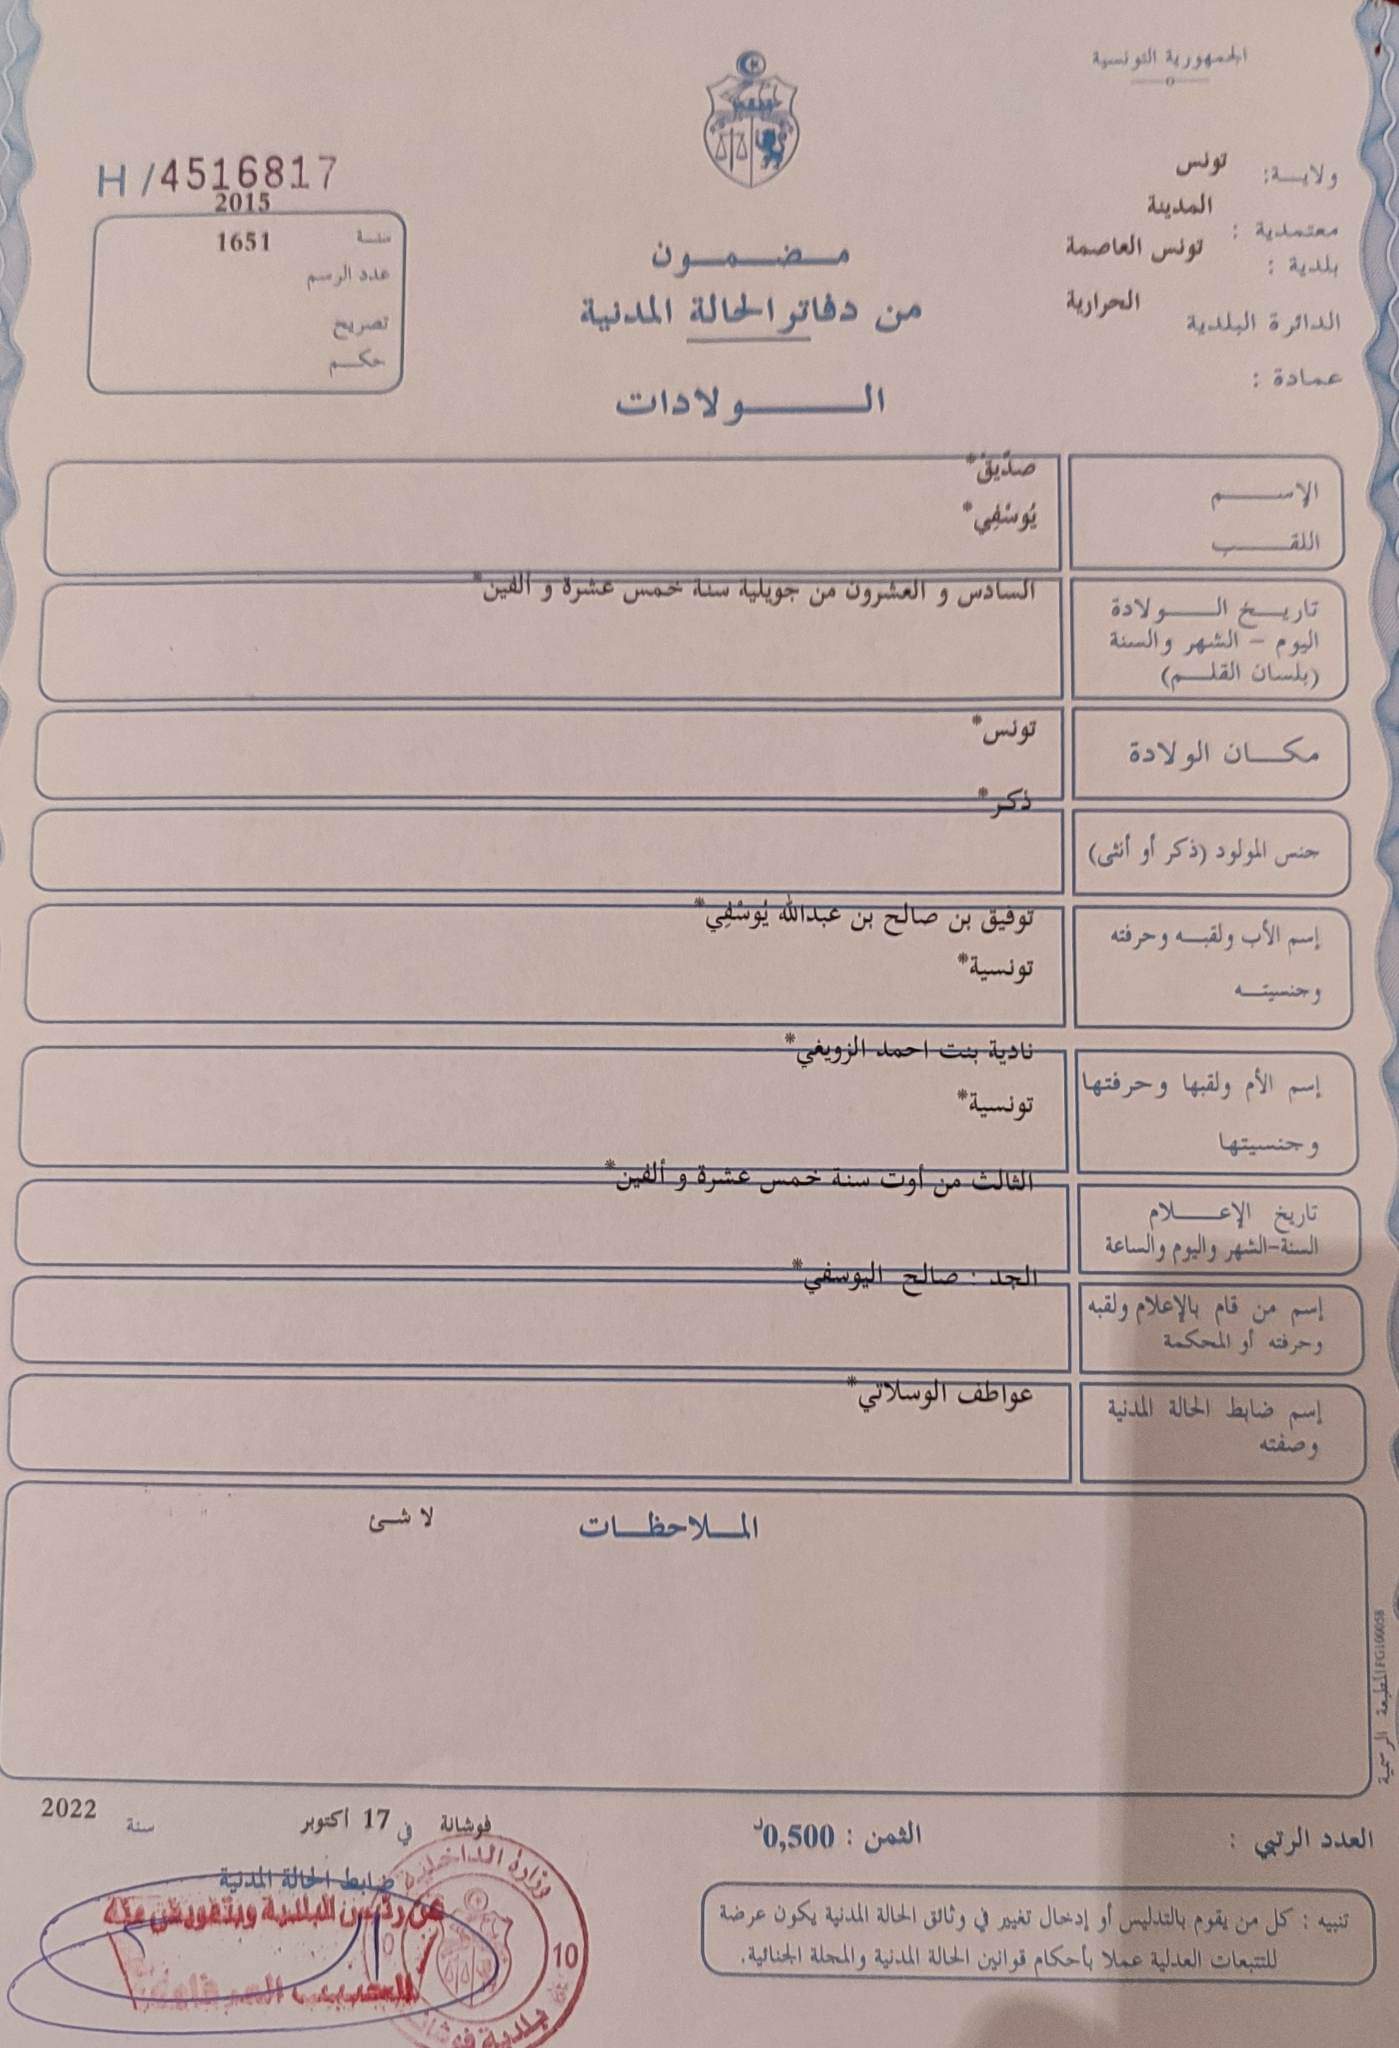 الجمهورية التونسية
ولايـــة: تونس
معتمدية : المدينة
بلدية : تونس العاصمة
الدائرة البلدية الحرارية
عمادة :
H/4516817
2015
سنـة 1651
عدد الرسم
تصريح
حكـــم
مــضــمــون
من دفاتر الحالة المدنية
الـــــولادات
الإســـــم صدّيق*
اللقـــــب يُوسْفِي*
تاريـــخ الـــــولادة السادس و العشرون من جويلية سنة خمس عشرة و ألفين*
اليوم – الشهر والسنة
(بلسان القلـــم)
مكـــان الولادة تونس*
ذكر*
جنس المولود (ذكر أو أنثى)
إسم الأب ولقبـــه وحرفته توفيق بن صالح بن عبدالله يُوسْفِي*
وجنسيتـــه تونسية*
نادية بنت احمد الزويغي*
إسم الأم ولقبها وحرفتها
وجنسيتها تونسية*
الثالث من أوت سنة خمس عشرة و ألفين*
تاريخ الإعـــــلام
السنة-الشهر واليوم والساعة
الجد : صالح اليوسفي*
إسم من قام بالإعلام ولقبه
وحرفته أو المحكمة
إسم ضابط الحالة المدنية عواطف الوسلاتي*
وصفته
الملاحظــات لا شئ
المطبعة الرسمية FG100058
العدد الرتبي :
الثمن : 0,500د
فوشانة في 17 أكتوبر سنة 2022
ضابط الحالة المدنية
عن رئيس البلدية وبتفويض منه
وزارة الداخلية
10
بلدية فوشانة
تنبيه : كل من يقوم بالتدليس أو إدخال تغيير في وثائق الحالة المدنية يكون عرضة
للتتبعات العدلية عملا بأحكام قوانين الحالة المدنية والمجلة الجنائية.